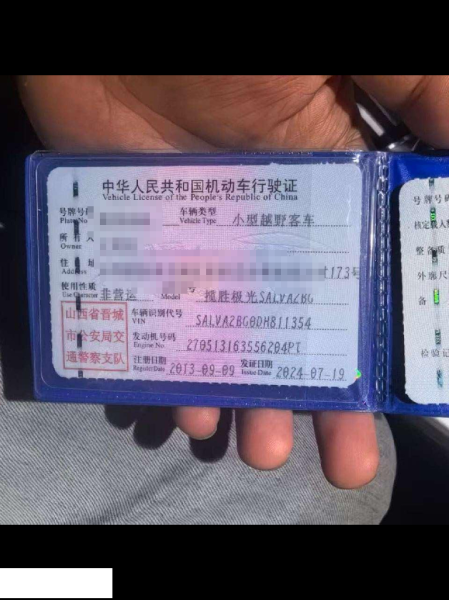 中华人民共和国机动车行驶证
Vehicle License of the People's Republic of China
号牌号码 车辆类型 小型越野客车
Plate No Vehicle Type
所有人
Owner
住 173号
Address
使用性质 非营运 揽胜极光SALVA2BG
Use Character Model
山西省晋城
市公安局交
通警察支队
车辆识别代号 SALVA2BG0DH811354
VIN
发动机号码 270513163556204PT
Engine No.
注册日期 2013-09-09 发证日期 2024-07-19
Register Date Issue Date
号牌号码
核定载人
整备质
外廓尺
备
检验记